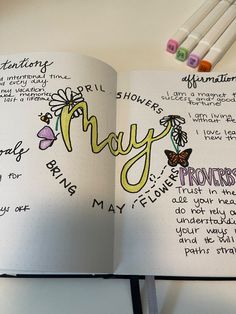 tentions
intentional time
every day
my vacation
memories
last a lifetime
APRIL SHOWERS
May
BRING MAY FLOWERS
oals
for
ys off
affirmation
I am a magnet
success and good
fortune
I am living
without
I love lea
new th
PROVERBS
Trust in the
all your hea
do not rely o
understandin
your ways
and He will
paths straig